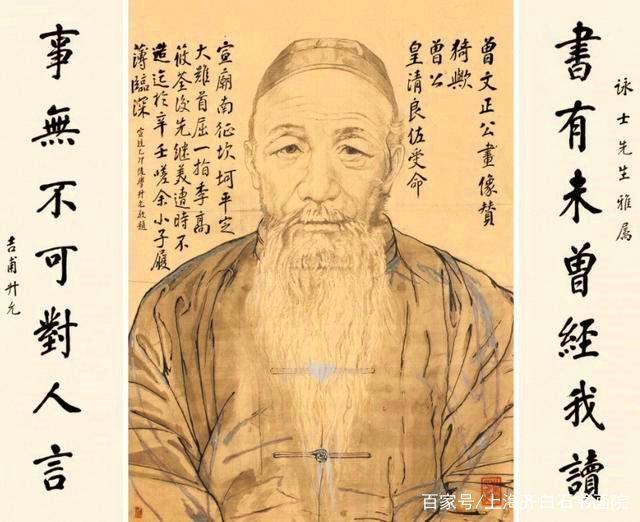 書有未曾經我讀
詠士先生雅屬
曾文正公畫像贊
猗歟
曾公
皇清良佐受命
宣廟南征坎坷平定
大難首屈一指李高
筱荃後先繼美遭時不
造迄於辛壬嗟余小子履
薄臨深 宣統乙卯後學升允敬題
事無不可對人言
吉甫升允
百家号/上海齐白石书画院